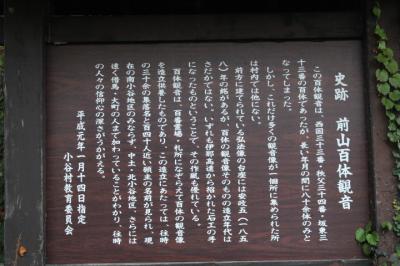 史跡 前山百体観音
この百体観音は、西国三十三番・秩父三十四番・坂東三
十三番の百体であったが、長い年月の間に八十余体のみと
なってしまった。
しかし、これだけ多くの観音像が一個所に集められた所
は村内では他にない。
前方に建てられている弘法様の台座には安政五(一八五
八)年の銘があるが、百体の観音像そのものの造立年代は
さだかではない。いずれも伊那高遠から招かれた石工の手
になったものということで、その作風も優れている。
百体観音は、百番霊場の札所になぞらえて百体の観音像
を造立供養したものであり、この造立にあたっては、往時
の三十余の集落名と百四十人近い願主の名前が見られ、現
在の南小谷地区のみならず、中土・北小谷地区、さらには
遠く借馬・大町の人まで加わっていることがわかり、往時
の人々の信仰心の深さがうかがえる。
平成元年一月十四日指定
小谷村教育委員会